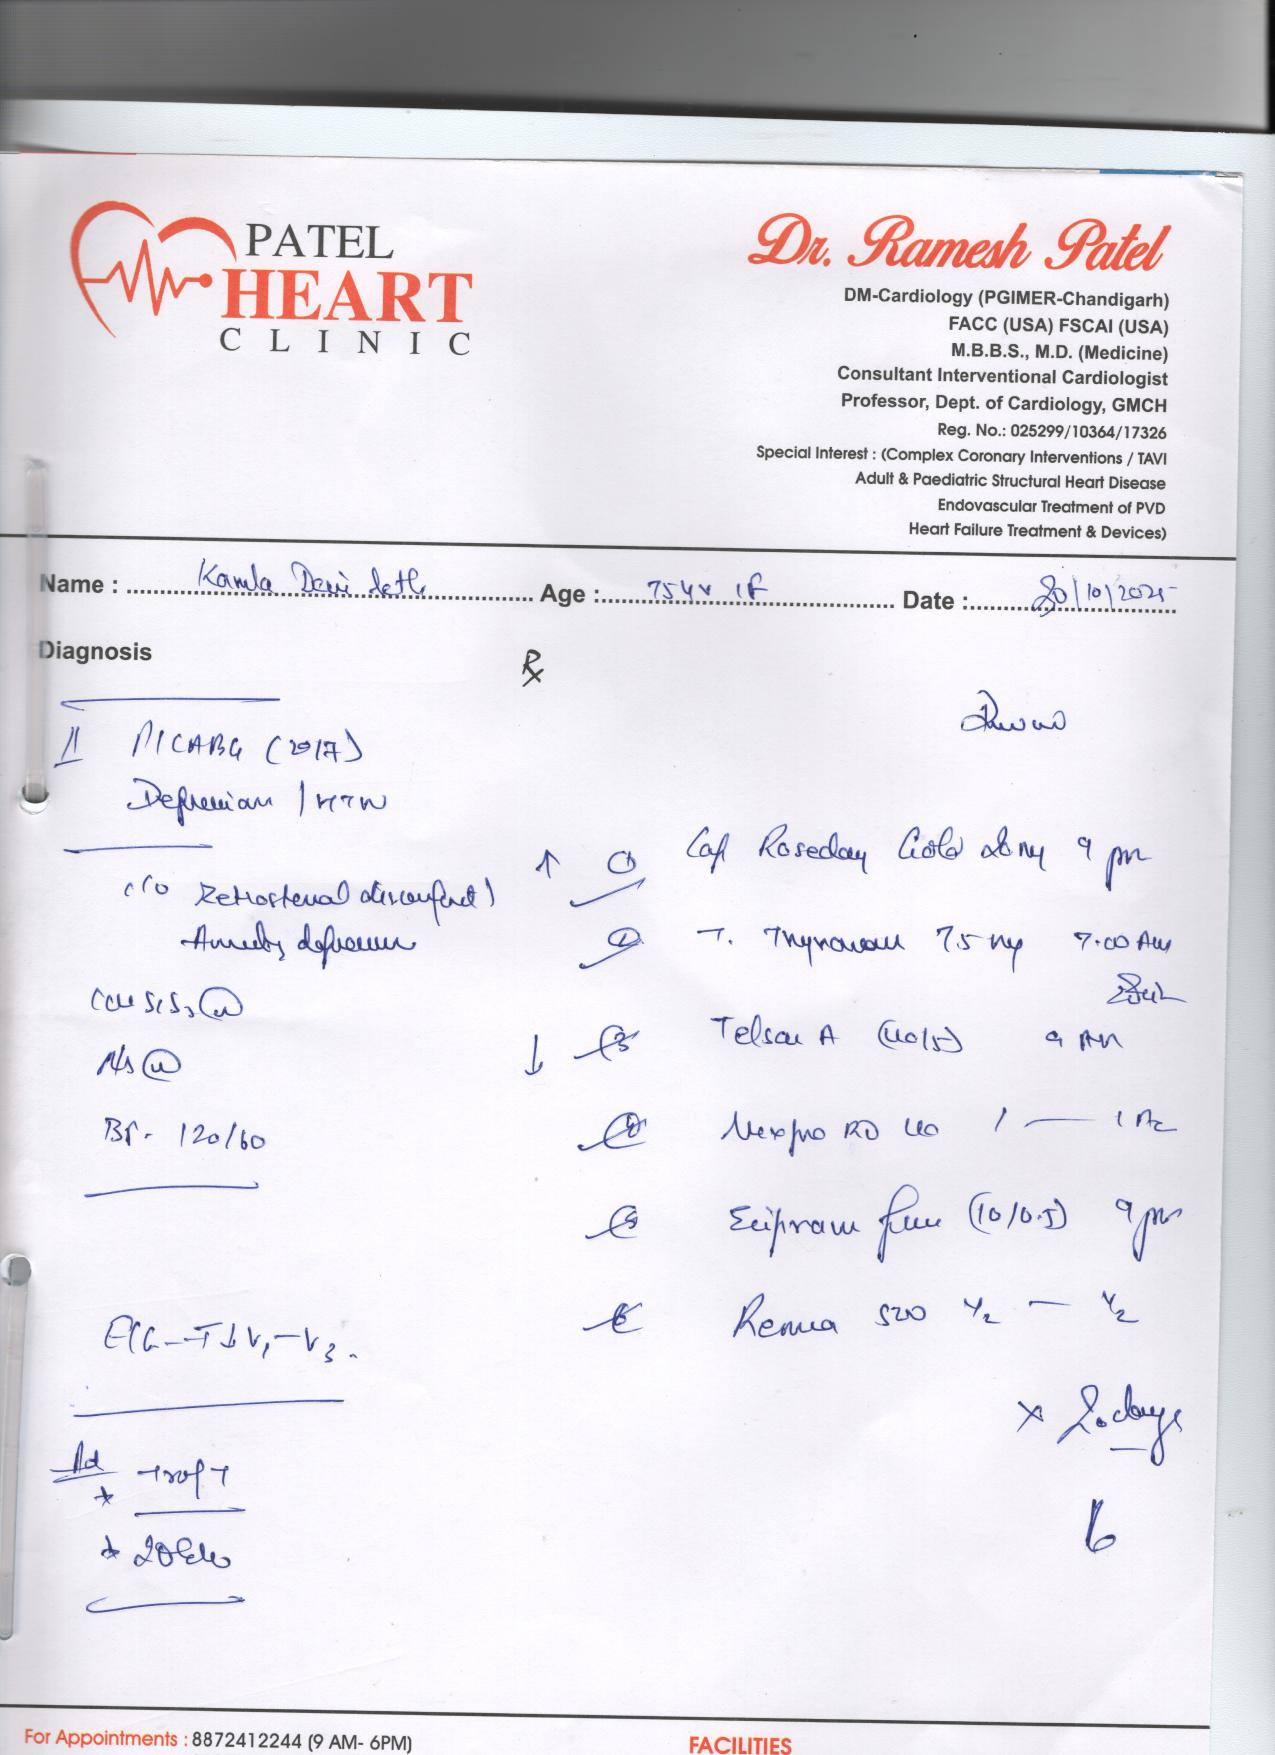 PATEL
HEART
CLINIC
Dr. Ramesh Patel
DM-Cardiology (PGIMER-Chandigarh)
FACC (USA) FSCAI (USA)
M.B.B.S., M.D. (Medicine)
Consultant Interventional Cardiologist
Professor, Dept. of Cardiology, GMCH
Reg. No.: 025299/10364/17326
Special Interest : (Complex Coronary Interventions / TAVI
Adult & Paediatric Structural Heart Disease
Endovascular Treatment of PVD
Heart Failure Treatment & Devices)
Name : Kamla Devi Age : 75yr / F Date : 30/10/2025
Diagnosis
Rx
P/CABG (2017)
Depression / HTN
c/o Retrosternal discomfort
Anxiety depression
CVS S1S2 (N)
N/S (N)
BP - 120/60
ECG - T↓ V1-V3.
Ad
* Trop T
* 2D Echo
↑ 1 Cap Roseday Gold 20 mg 9 pm
2 T. 75 mg 7.00 AM
↓ 3 Telsar A (40/5) 9 AM
4 Nexpro RD 40 1 — 1 AC
5 (10/0.5) 9 pm
6 500 1/2 — 1/2
x days
For Appointments : 8872412244 (9 AM- 6PM)
FACILITIES